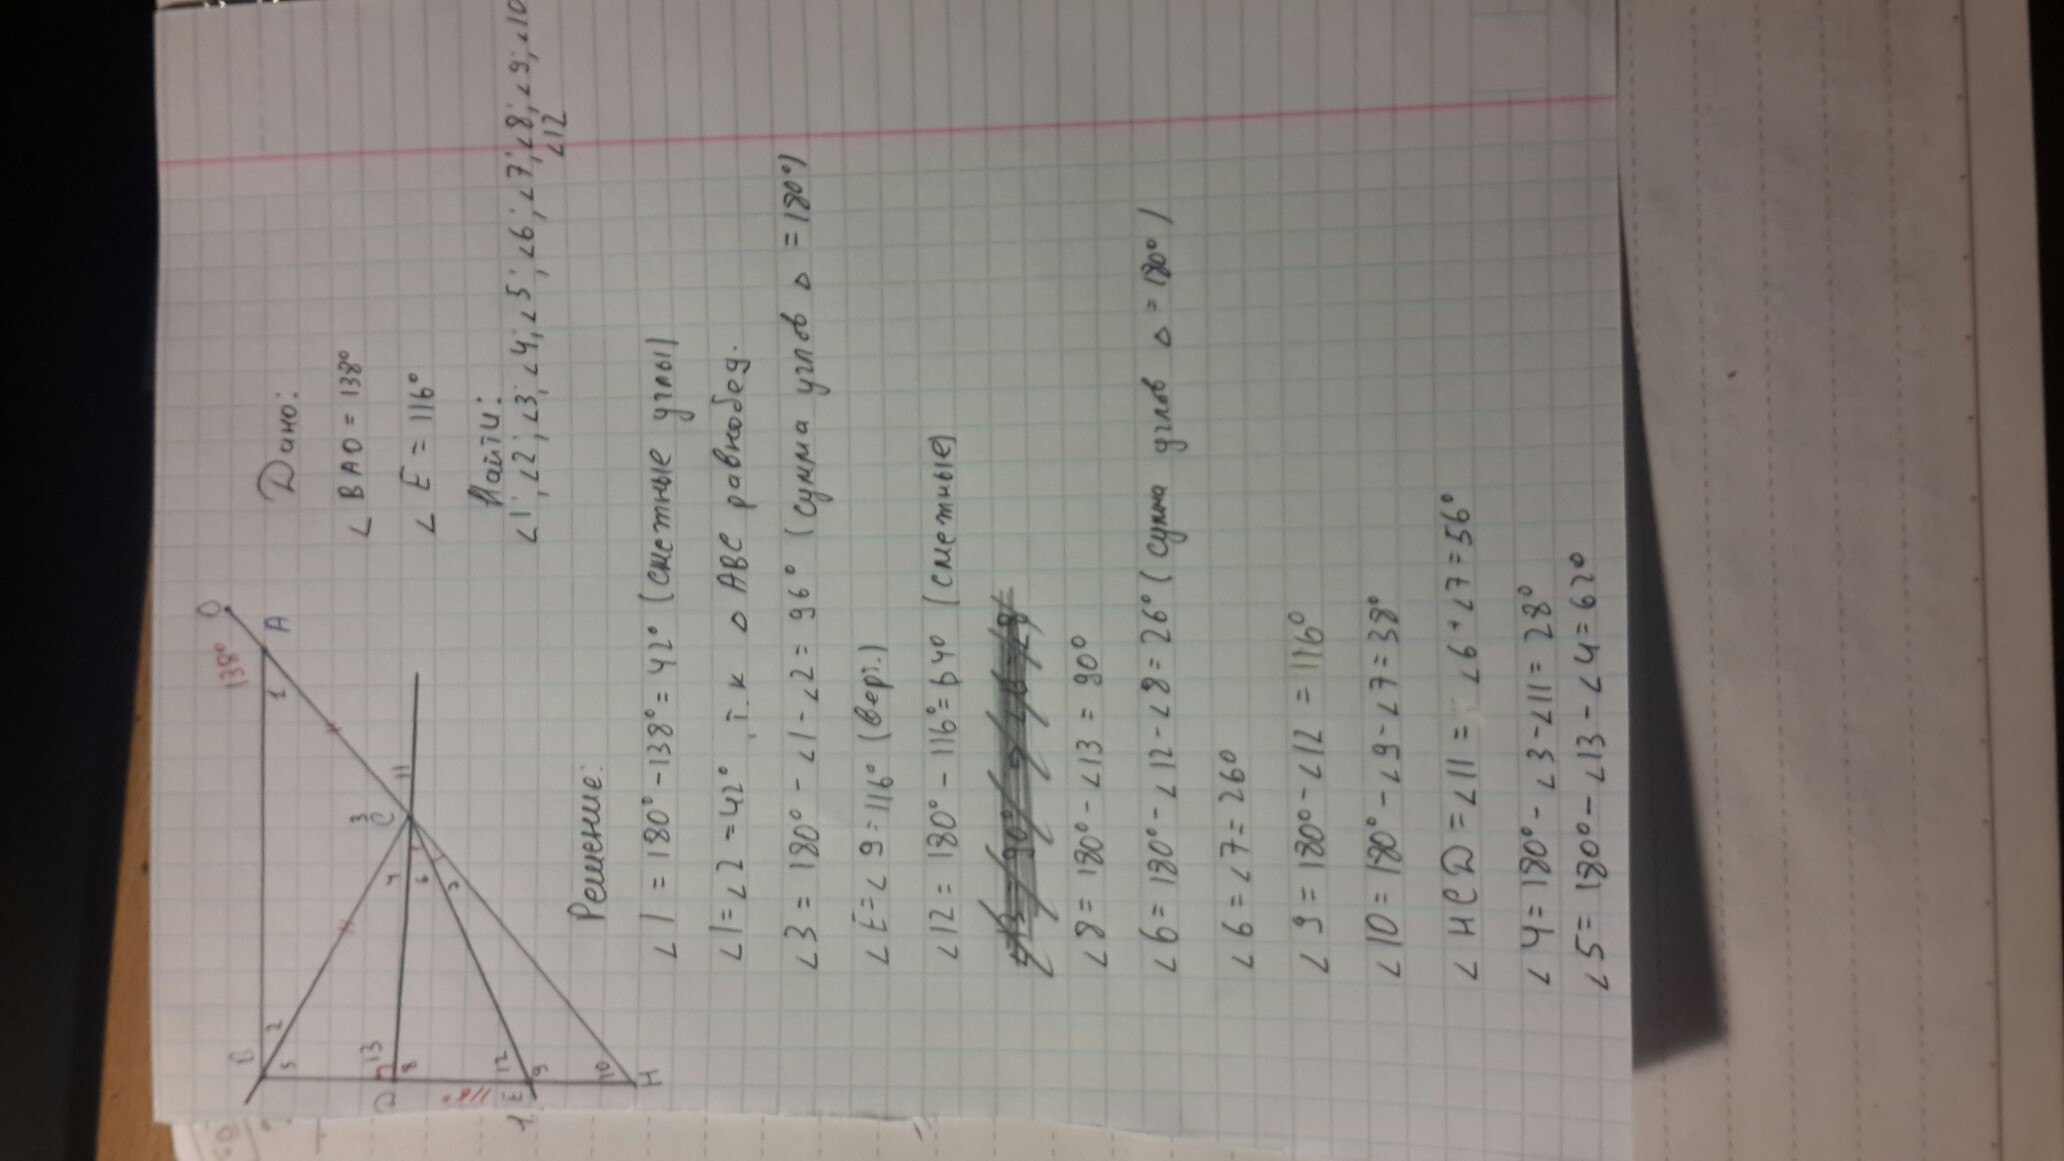 Дано:
∠ BAO = 138°
∠ E = 116°
Найти:
∠1; ∠2; ∠3; ∠4; ∠5; ∠6; ∠7; ∠8; ∠9; ∠10
∠12
138°
O
A
1
11
3
C
4
6
7
B
2
5
13
D
8
12
E
9
10
H
Решение:
∠1 = 180° - 138° = 42° (сметные углы)
∠1 = ∠2 = 42° т.к △ ABC равнобед.
∠3 = 180° - ∠1 - ∠2 = 96° (сумма углов △ = 180°)
∠E = ∠9 = 116° (верт.)
∠12 = 180° - 116° = 64° (сметные)
∠8 = 180° - ∠13 = 90°
∠6 = 180° - ∠12 - ∠8 = 26° (сумма углов △ = 180°)
∠6 = ∠7 = 26°
∠9 = 180° - ∠12 = 116°
∠10 = 180° - ∠9 - ∠7 = 38°
∠HCD = ∠11 = ∠6 + ∠7 = 56°
∠4 = 180° - ∠3 - ∠11 = 28°
∠5 = 180° - ∠13 - ∠4 = 62°